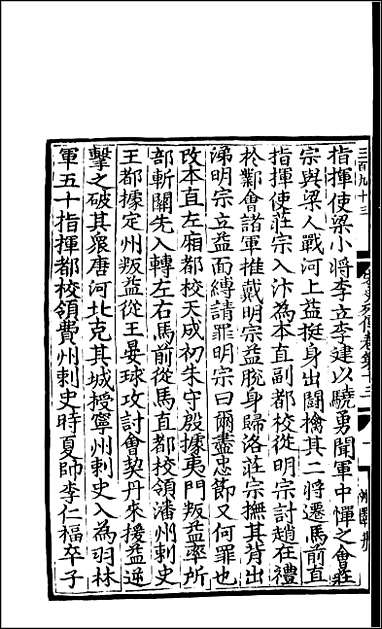 三百九十三
指揮使梁小將李立李建以驍勇聞軍中憚之會莊
宗與梁人戰河上益挺身出鬪擒其二將遷馬前直
指揮使莊宗入汴為本直副都校從明宗討趙在禮
於鄴會諸軍推戴明宗益脫身歸洛莊宗撫其背出
涕明宗立益面縛請罪明宗曰爾盡忠節又何罪也
改本直左廂都校天成初朱守殷據夷門叛益率所
部斬關先入轉左右馬前從馬直都校領潘州刺史
王都據定州叛益從王晏球攻討會契丹來援益逆
擊之破其衆唐河北克其城授寧州刺史入為羽林
軍五十指揮都校領費州刺史時夏帥李仁福卒子